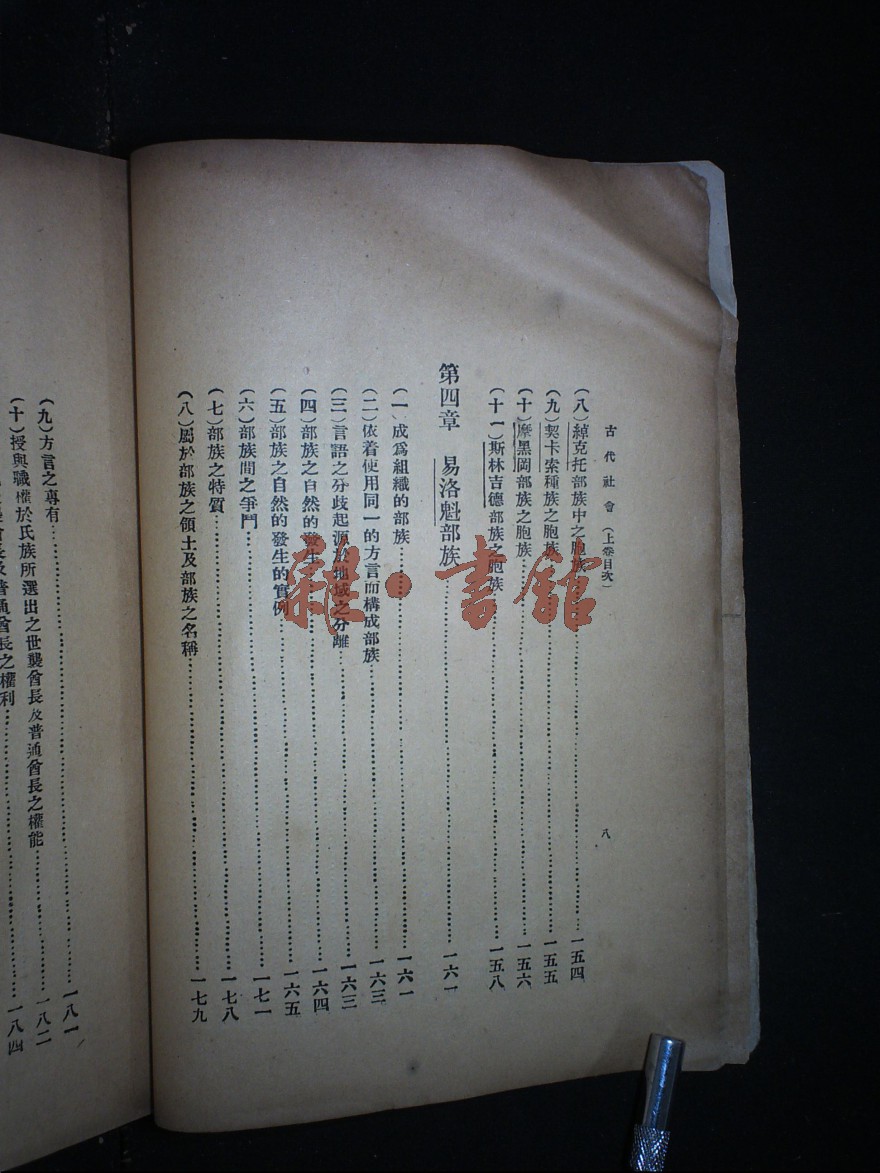 古代社會（上卷目次）
八
（八）綽克托部族中之胞族……一五四
（九）契卡索種族之胞族……一五五
（十）摩黑岡部族之胞族……一五六
（十一）斯林吉德部族之胞族……一五八
第四章 易洛魁部族……一六一
（一）成爲組織的部族……一六一
（二）依着使用同一的方言而構成部族……一六三
（三）言語之分歧起源於地域之分離……一六三
（四）部族之自然的發生……一六四
（五）部族之自然的發生的實例……一六五
（六）部族間之爭鬥……一七一
（七）部族之特質……一七八
（八）屬於部族之領土及部族之名稱……一七九
（九）方言之專有……一八一
（十）授與職權於氏族所選出之世襲酋長及普通酋長之權能……一八二
酋長及普通酋長之權利……一八四
雜·書館